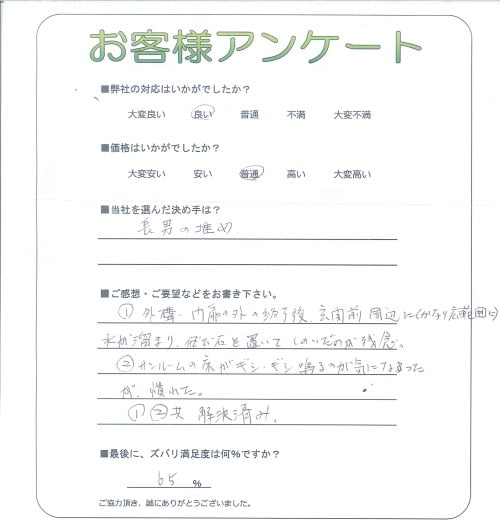 お客様アンケート
■弊社の対応はいかがでしたか？
大変良い 良い 普通 不満 大変不満
■価格はいかがでしたか？
大変安い 安い 普通 高い 大変高い
■当社を選んだ決め手は？
長男の推め
■ご感想・ご要望などをお書き下さい。
① 外構・の外の後、玄関前周辺に(かなり広範囲に)
水が溜まり、石を置いてしのいだのが残念。
② サンルームの床がギシ・ギシ鳴るのが気になった
が、慣れた。
①②共 解決済み。
■最後に、ズバリ満足度は何％ですか？
65 ％
ご協力頂き、誠にありがとうございました。